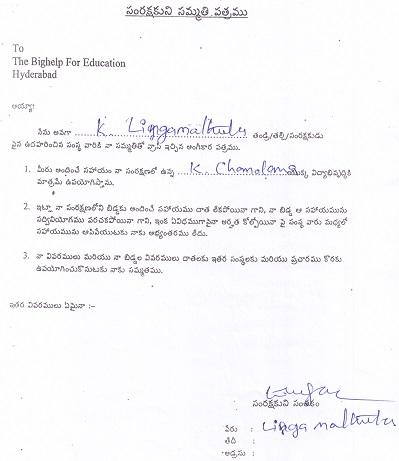 సంరక్షకుని సమ్మతి పత్రము
To
The Bighelp For Education
Hyderabad
అయ్యా!
నేను అనగా K. Lingamalhulu తండ్రి/తల్లి/సంరక్షకుడు
పైన ఉదహరించిన సంస్థ వారికి నా సమ్మతితో వ్రాసి ఇచ్చిన అంగీకార పత్రము.
1. మీరు అందించే సహాయం నా సంరక్షణలో ఉన్న K. Chamalama యొక్క విద్యాభివృద్ధికి
మాత్రమే ఉపయోగిస్తాను.
2. ఇట్లా నా సంరక్షణలోని బిడ్డకు అందించే సహాయము దాత లేకపోయినా గాని, నా బిడ్డ ఆ సహాయమును
సద్వినియోగము పరచకపోయినా గాని, ఇంక ఏవిధముగానైనా అర్హత కోల్పోయినా పై సంస్థ వారు మధ్యలో
సహాయమును ఆపివేయుటకు నాకు అభ్యంతరము లేదు.
3. నా వివరములు మరియు నా బిడ్డల వివరములు దాతలకు ఇతర సంస్థలకు మరియు ప్రచారము కొరకు
ఉపయోగించుకొనుటకు నాకు సమ్మతము.
ఇతర వివరములు ఏమైనా :-
సంరక్షకుని సంతకం
పేరు : Linga malhulu
తేదీ :
అడ్రసు :